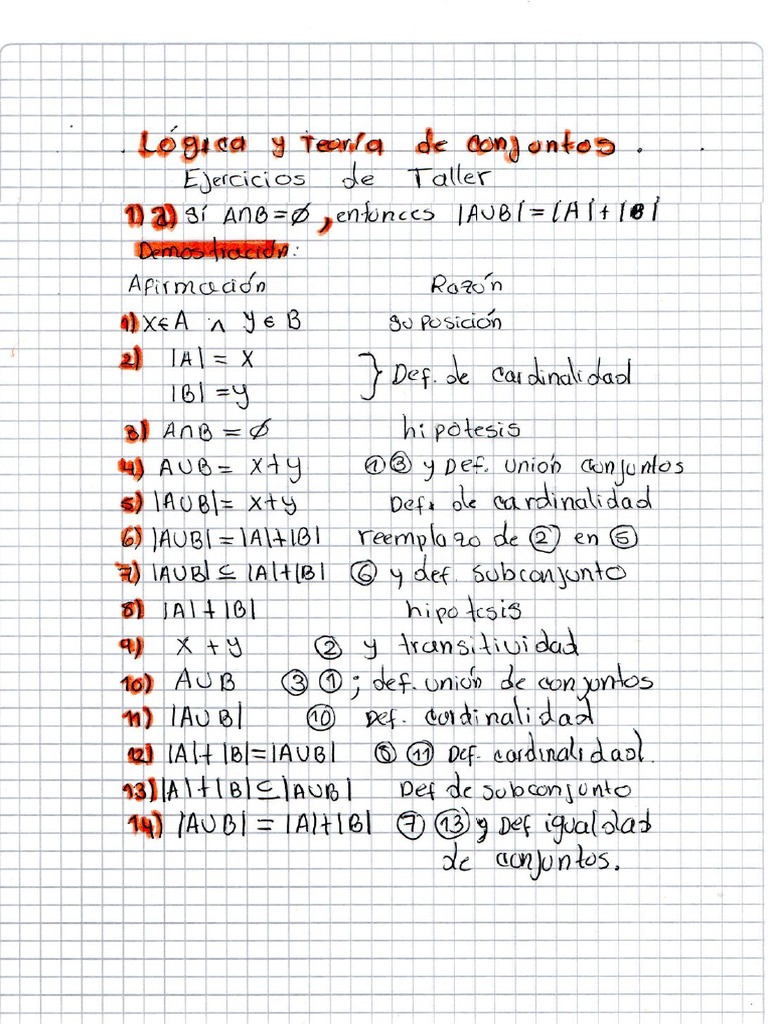 Lógica y teoría de conjuntos.
Ejercicios de Taller
1) a) Si A∩B=∅, entonces |A∪B|=|A|+|B|
Demostración:
Afirmación Razón
1) x∈A ∧ y∈B suposición
2) |A| = x
|B| = y } Def. de cardinalidad
3) A∩B = ∅ hipótesis
4) A∪B = x+y ① ③ y Def. unión conjuntos
5) |A∪B| = x+y Def. de cardinalidad
6) |A∪B| = |A|+|B| reemplazo de ② en ⑤
7) |A∪B| ⊆ |A|+|B| ⑥ y def. subconjunto
8) |A|+|B| hipotesis
9) x + y ② y transitividad
10) A∪B ③ ①; def. unión de conjuntos
11) |A∪B| ⑩ Def. cardinalidad
12) |A|+|B|=|A∪B| ⑧ ⑪ Def. cardinalidad.
13) |A|+|B|⊆|A∪B| Def de subconjunto
14) |A∪B| = |A|+|B| ⑦ ⑬ y Def igualdad
de conjuntos.